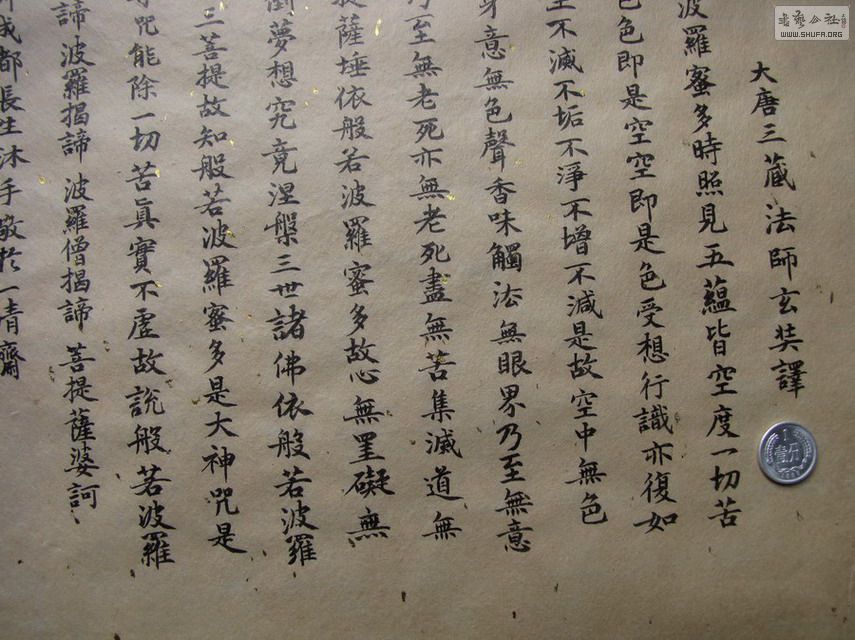 大唐三藏法師玄奘譯
波羅蜜多時照見五蘊皆空度一切苦
色即是空空即是色受想行識亦復如
不滅不垢不淨不增不減是故空中無色
身意無色聲香味觸法無眼界乃至無意
乃至無老死亦無老死盡無苦集滅道無
提薩埵依般若波羅蜜多故心無罣礙無
倒夢想究竟涅槃三世諸佛依般若波羅
三菩提故知般若波羅蜜多是大神咒是
咒能除一切苦真實不虛故說般若波羅
諦 波羅揭諦 波羅僧揭諦 菩提薩婆訶
成都長生沐手敬於一清齋
書藝公社
WWW.SHUFA.ORG
1
壹分